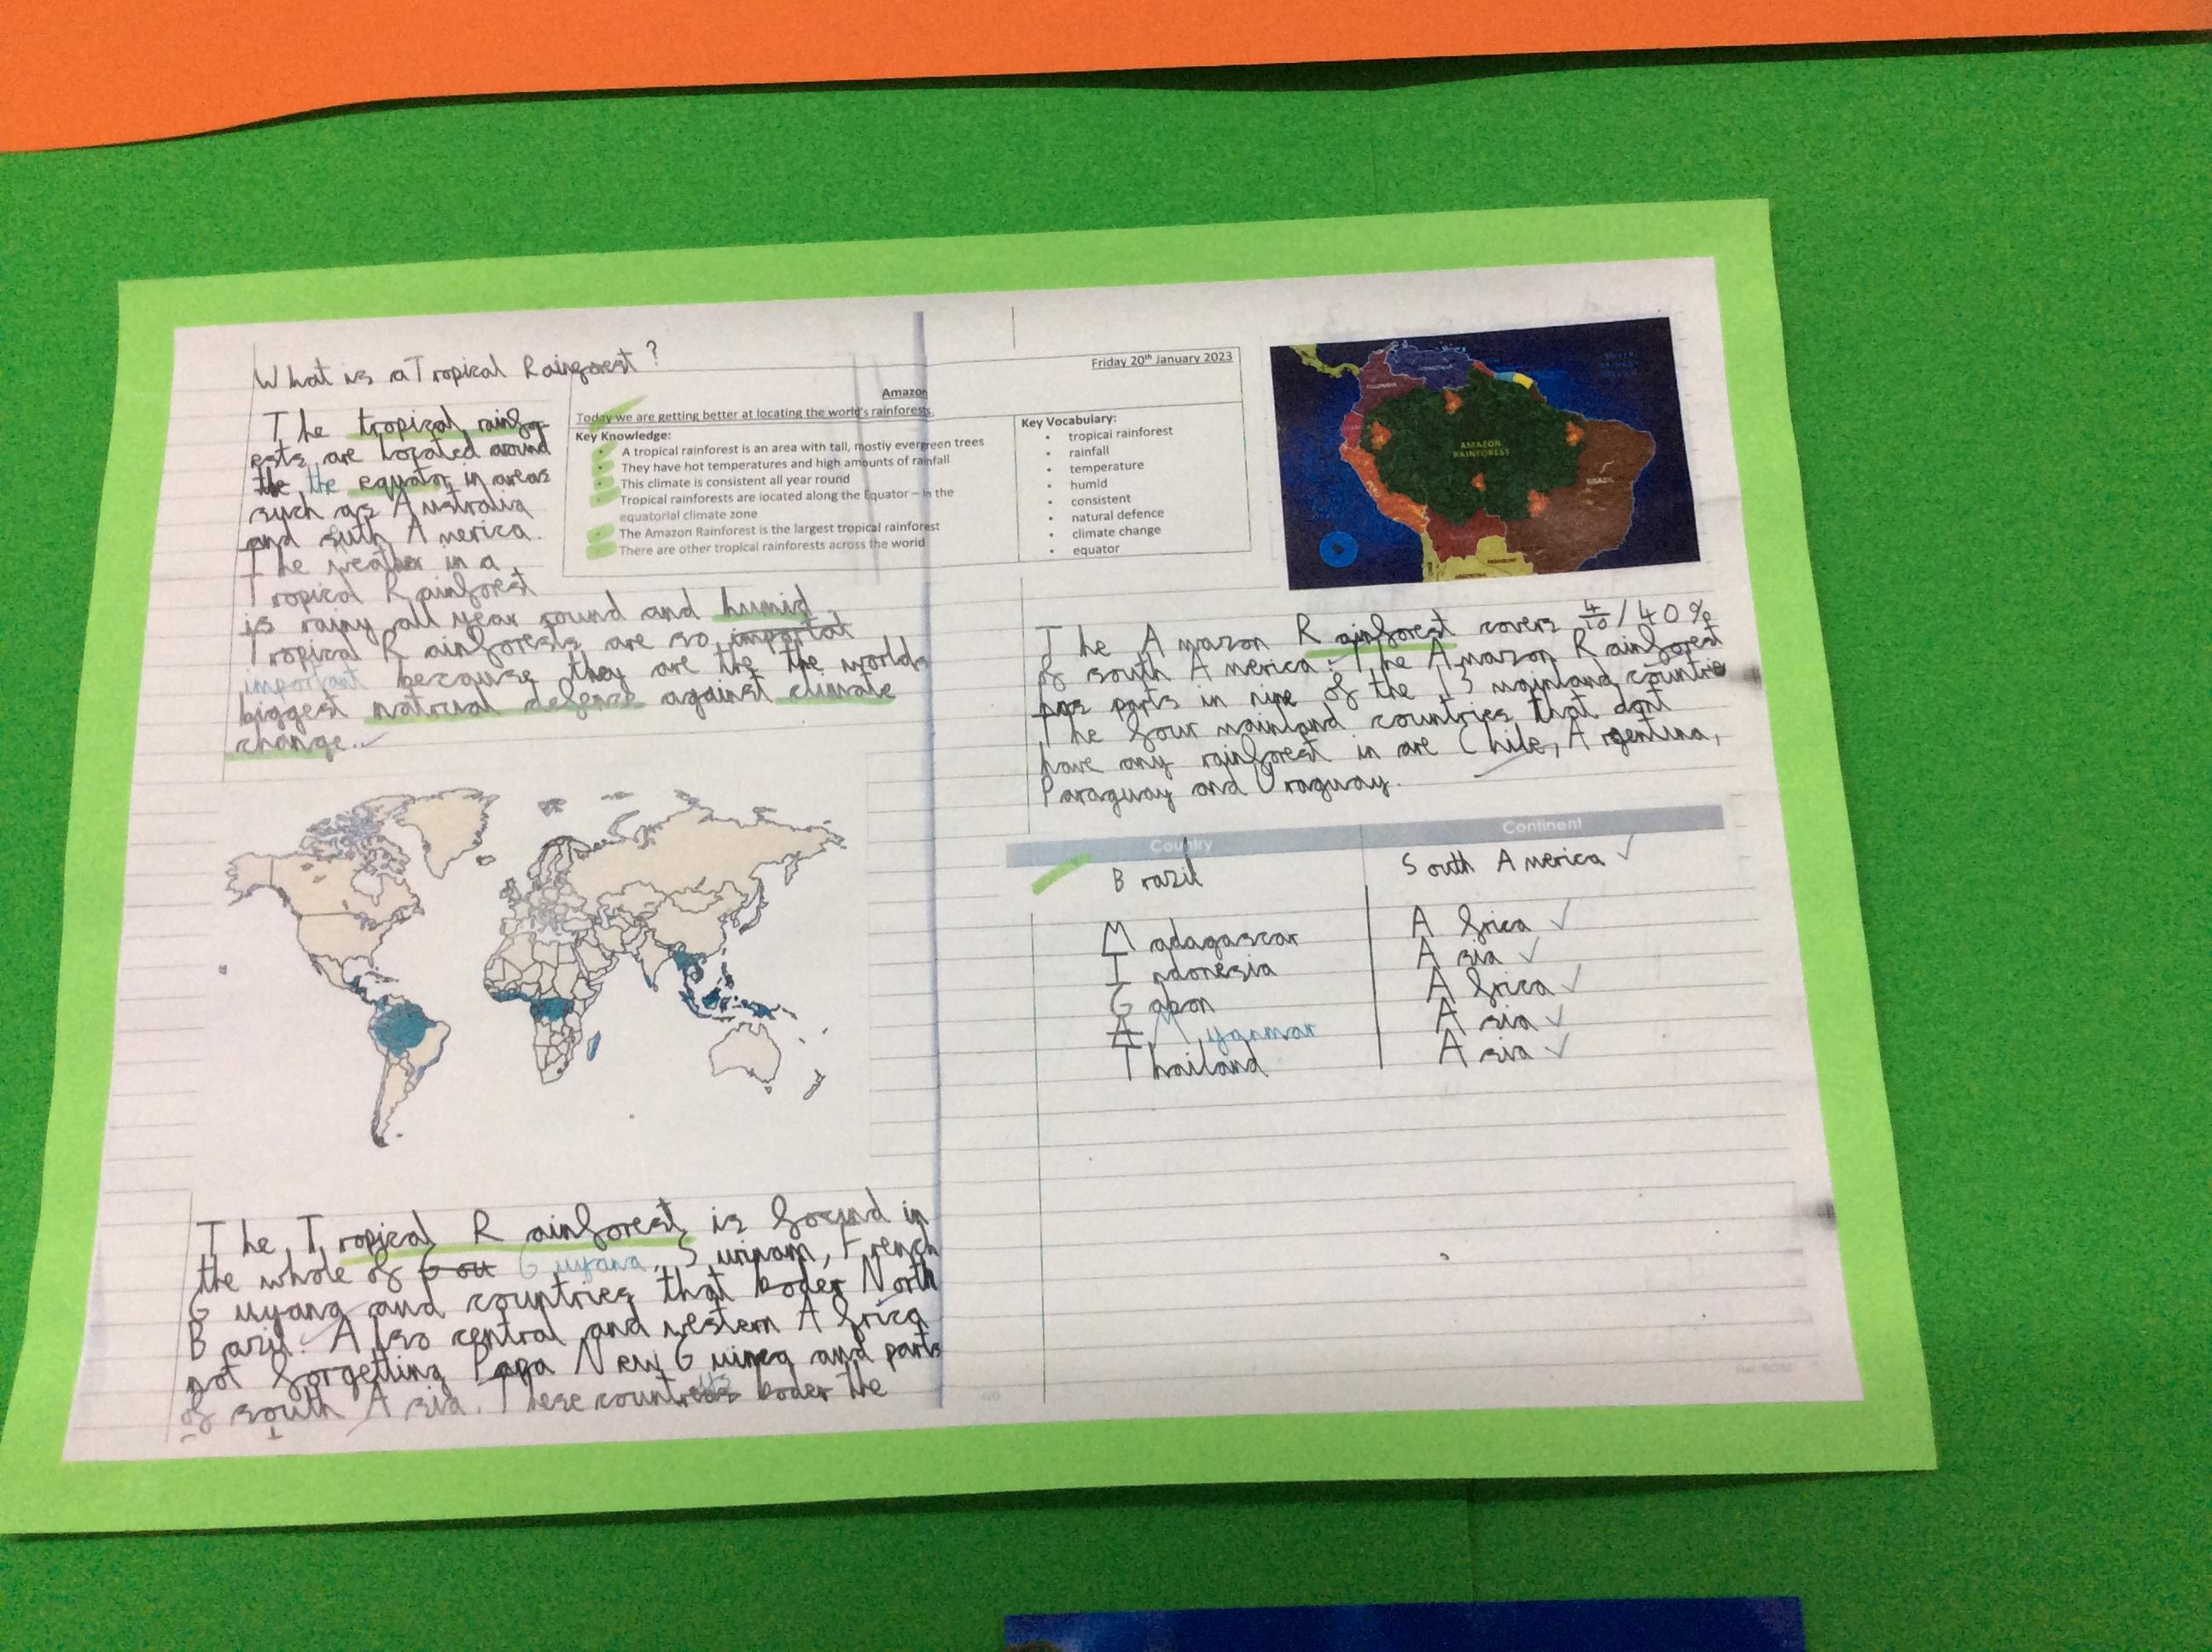 What is a Tropical Rainforest?
The tropical rainfo-
rests are located around
the the equator in areas
such as Australia
and south America.
The weather in a
Tropical Rainforest
is rainy all year round and humid.
Tropical Rainforests are so importat
important because they are the the worlds
biggest natrual defense against climate
change.
Friday 20th January 2023
Amazon
Today we are getting better at locating the world's rainforests.
Key Knowledge:
• A tropical rainforest is an area with tall, mostly evergreen trees
• They have hot temperatures and high amounts of rainfall
• This climate is consistent all year round
• Tropical rainforests are located along the Equator – in the
equatorial climate zone
• The Amazon Rainforest is the largest tropical rainforest
• There are other tropical rainforests across the world
Key Vocabulary:
• tropical rainforest
• rainfall
• temperature
• humid
• consistent
• natural defence
• climate change
• equator
The Tropical Rainforest is found in
the whole of Gou Guyana, Surinam, French
Guyana and countries that boder North
Bazil. Also central and western Africa
not forgetting Papa New Guinea and parts
of south Asia. These countries boder the
AMAZON
RAINFOREST
BRAZIL
The Amazon Rainforest covers 4/10 / 40%
of south America. The Amazon Rainforest
has parts in nine of the 13 mainland countrie
The four mainland countries that dont
have any rainforest in are Chile, Argentina,
Paraguay and Uraguay.
Country Continent
Brazil South America
Madagascar Africa
Indonesia Asia
Gabon Africa
A Myanmar Asia
Thailand Asia